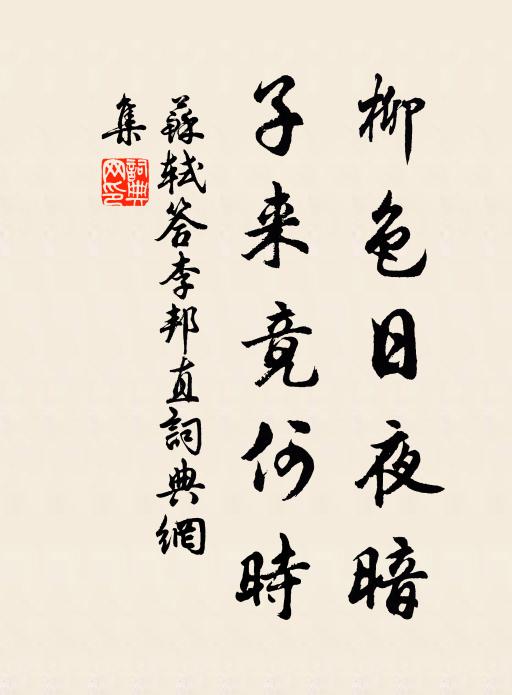 柳色日夜暗
子来竟何時
蘇軾答李邦直詞典網
集
詞典
网印